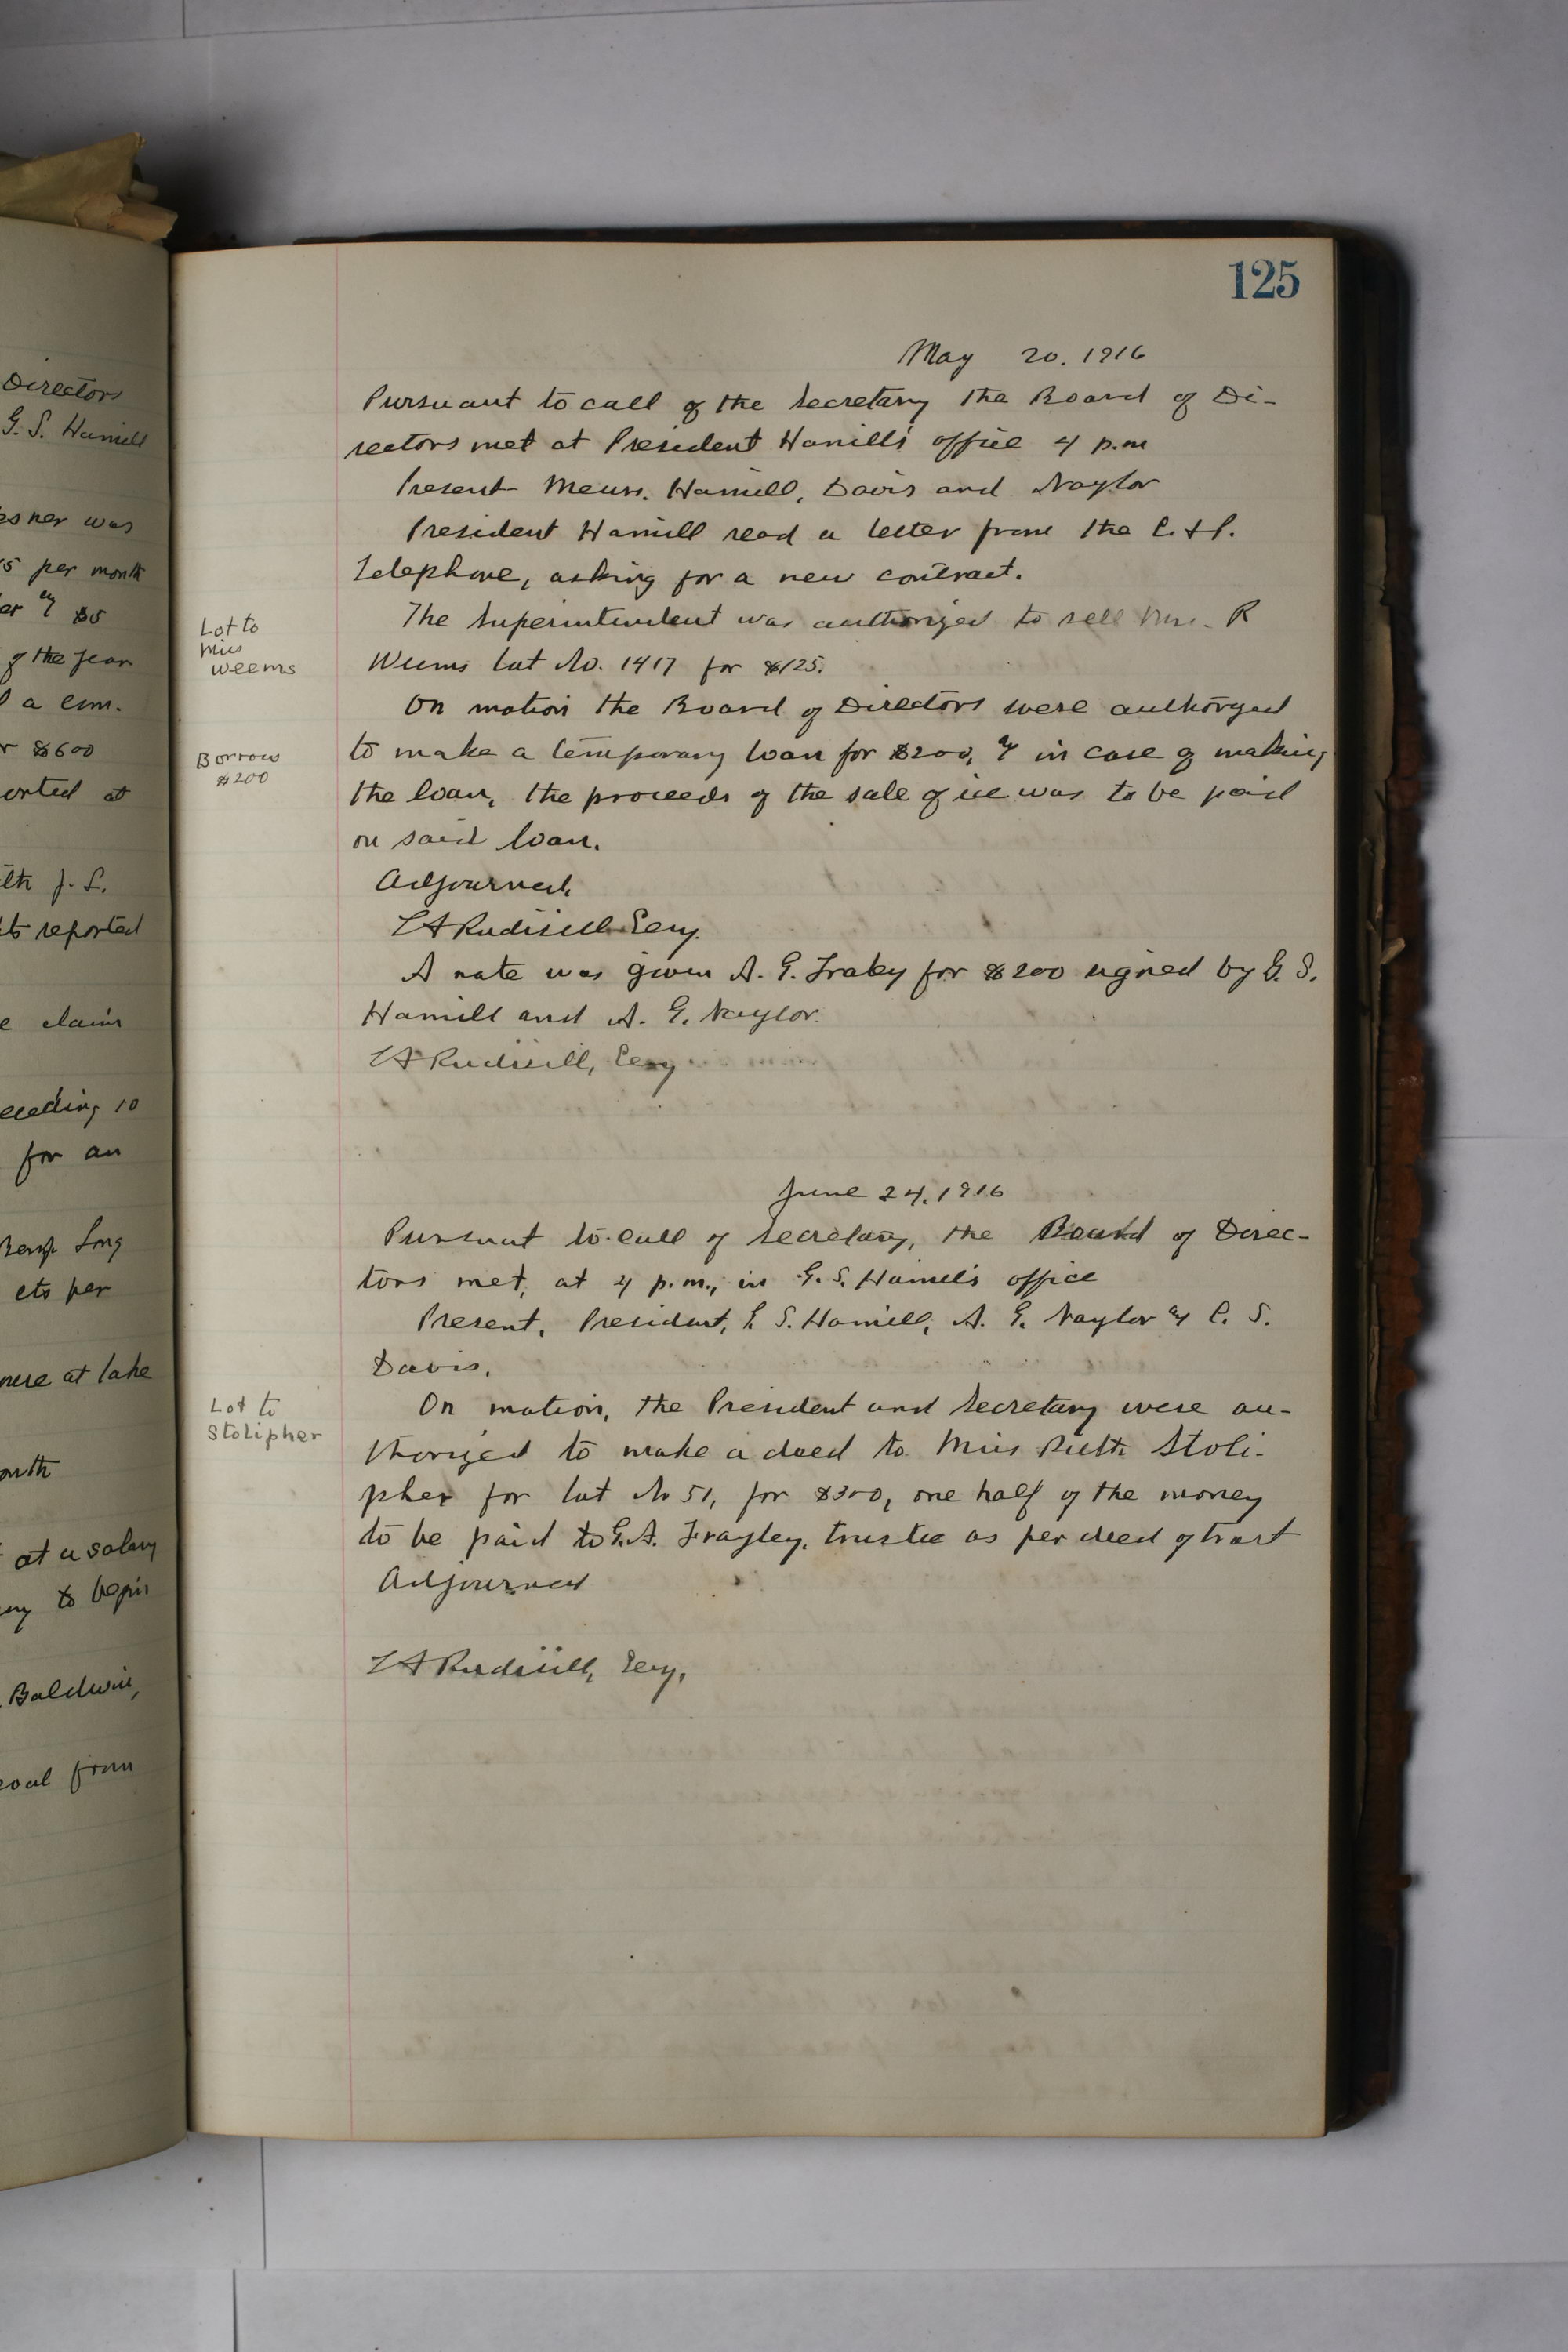 Directors
G. S. Hamill
was
5 per month
& $5
of the year
a com.
$600
at
J. L.
reported
claim
10
for an
Long
cts per
at lake
at a salary
to begin
Baldwin,
from
125
May 20. 1916
Pursuant to call of the Secretary the Board of Di-
rectors met at President Hamill's office 4 p.m
Present Messrs. Hamill, Davis and Naylor
President Hamill read a letter from the C. & P.
Telephone, asking for a new contract.
Lot to
Miss
Weems
The Superintendent was authorized to sell Mrs. R
Weems lot No. 1417 for $125.
On motion the Board of Directors were authorized
Borrow
$200
to make a temporary loan for $200, & in case of making
the loan, the proceeds of the sale of ice was to be paid
on said loan.
Adjourned.
Rudisill Secy.
A note was given A. G. Fraley for $200 signed by G. S.
Hamill and A. G. Naylor.
Rudisill, Secy
June 24, 1916
Pursuant to call of Secretary, the Board of Direc-
tors met, at 4 p.m., in G. S. Hamill's office
Present, President, G. S. Hamill, A. G. Naylor & C. S.
Davis.
Lot to
Stolipher
On motion, the President and Secretary were au-
thorized to make a deed to Miss Ruth Stoli-
pher for lot No 51, for $300, one half of the money
to be paid to G. A. Frayley, trustee as per deed of trust
Adjourned
Rudisill, Secy.